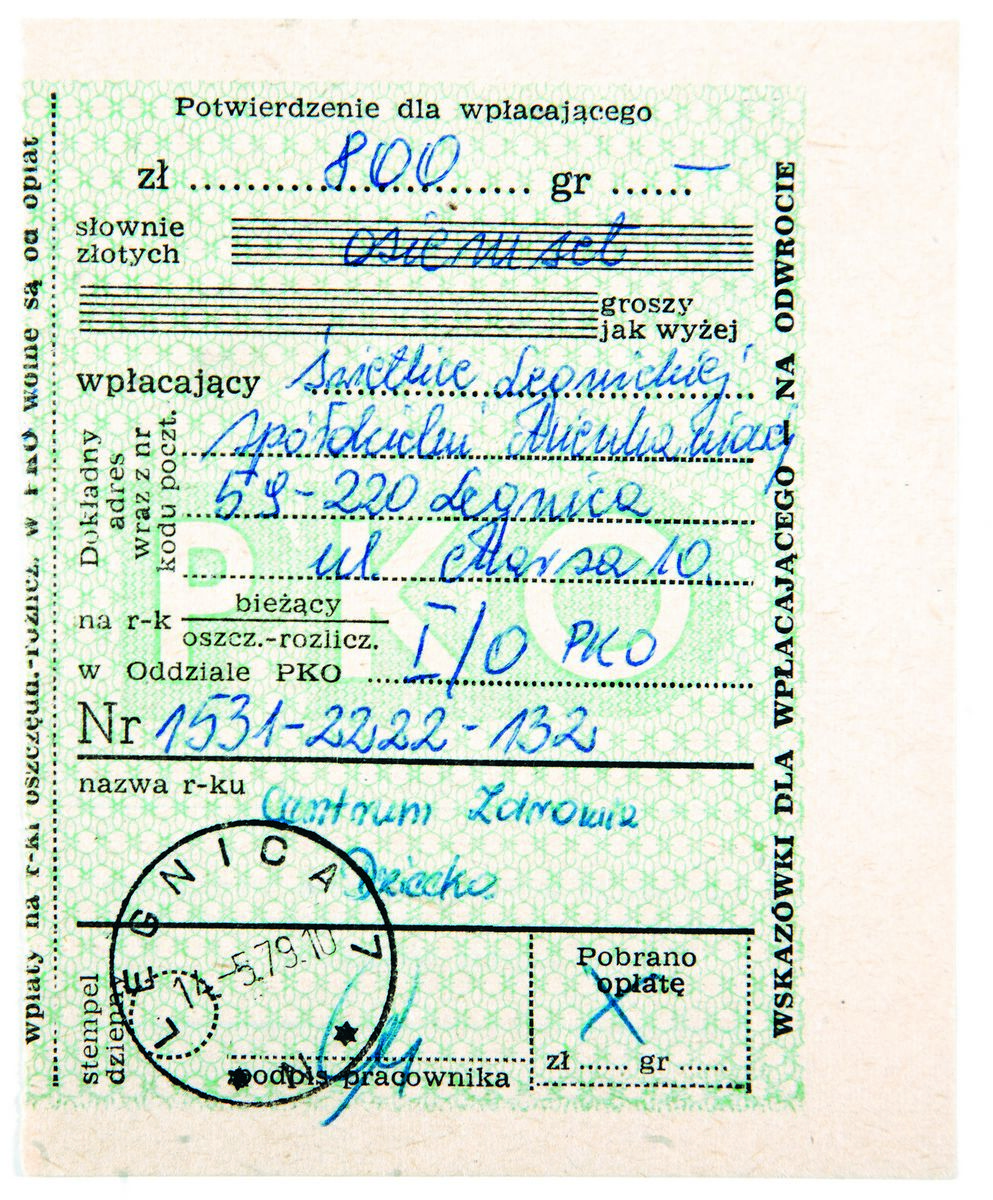 Potwierdzenie dla wpłacającego
zł 800 gr —
słownie
złotych osiemset
groszy
jak wyżej
wpłacający Świetlice Legnickiej
Spółdzielni Mieszkaniowej
Dokładny
adres
wraz z nr
kodu poczt.
59-220 Legnica
ul. Marsa 10
na r-k bieżący
oszcz.-rozlicz.
w Oddziale PKO I/O PKO
PKO
Nr 1531-2222-132
nazwa r-ku Centrum Zdrowia
Dziecka
LEGNICA 7
-5.79.10
stempel
dzienny
podpis pracownika
Pobrano
opłatę
X
zł ...... gr ......
WSKAZÓWKI DLA WPŁACAJĄCEGO — NA ODWROCIE
wpłaty na r-ki oszczędn.-rozlicz. w PKO wolne są od opłat